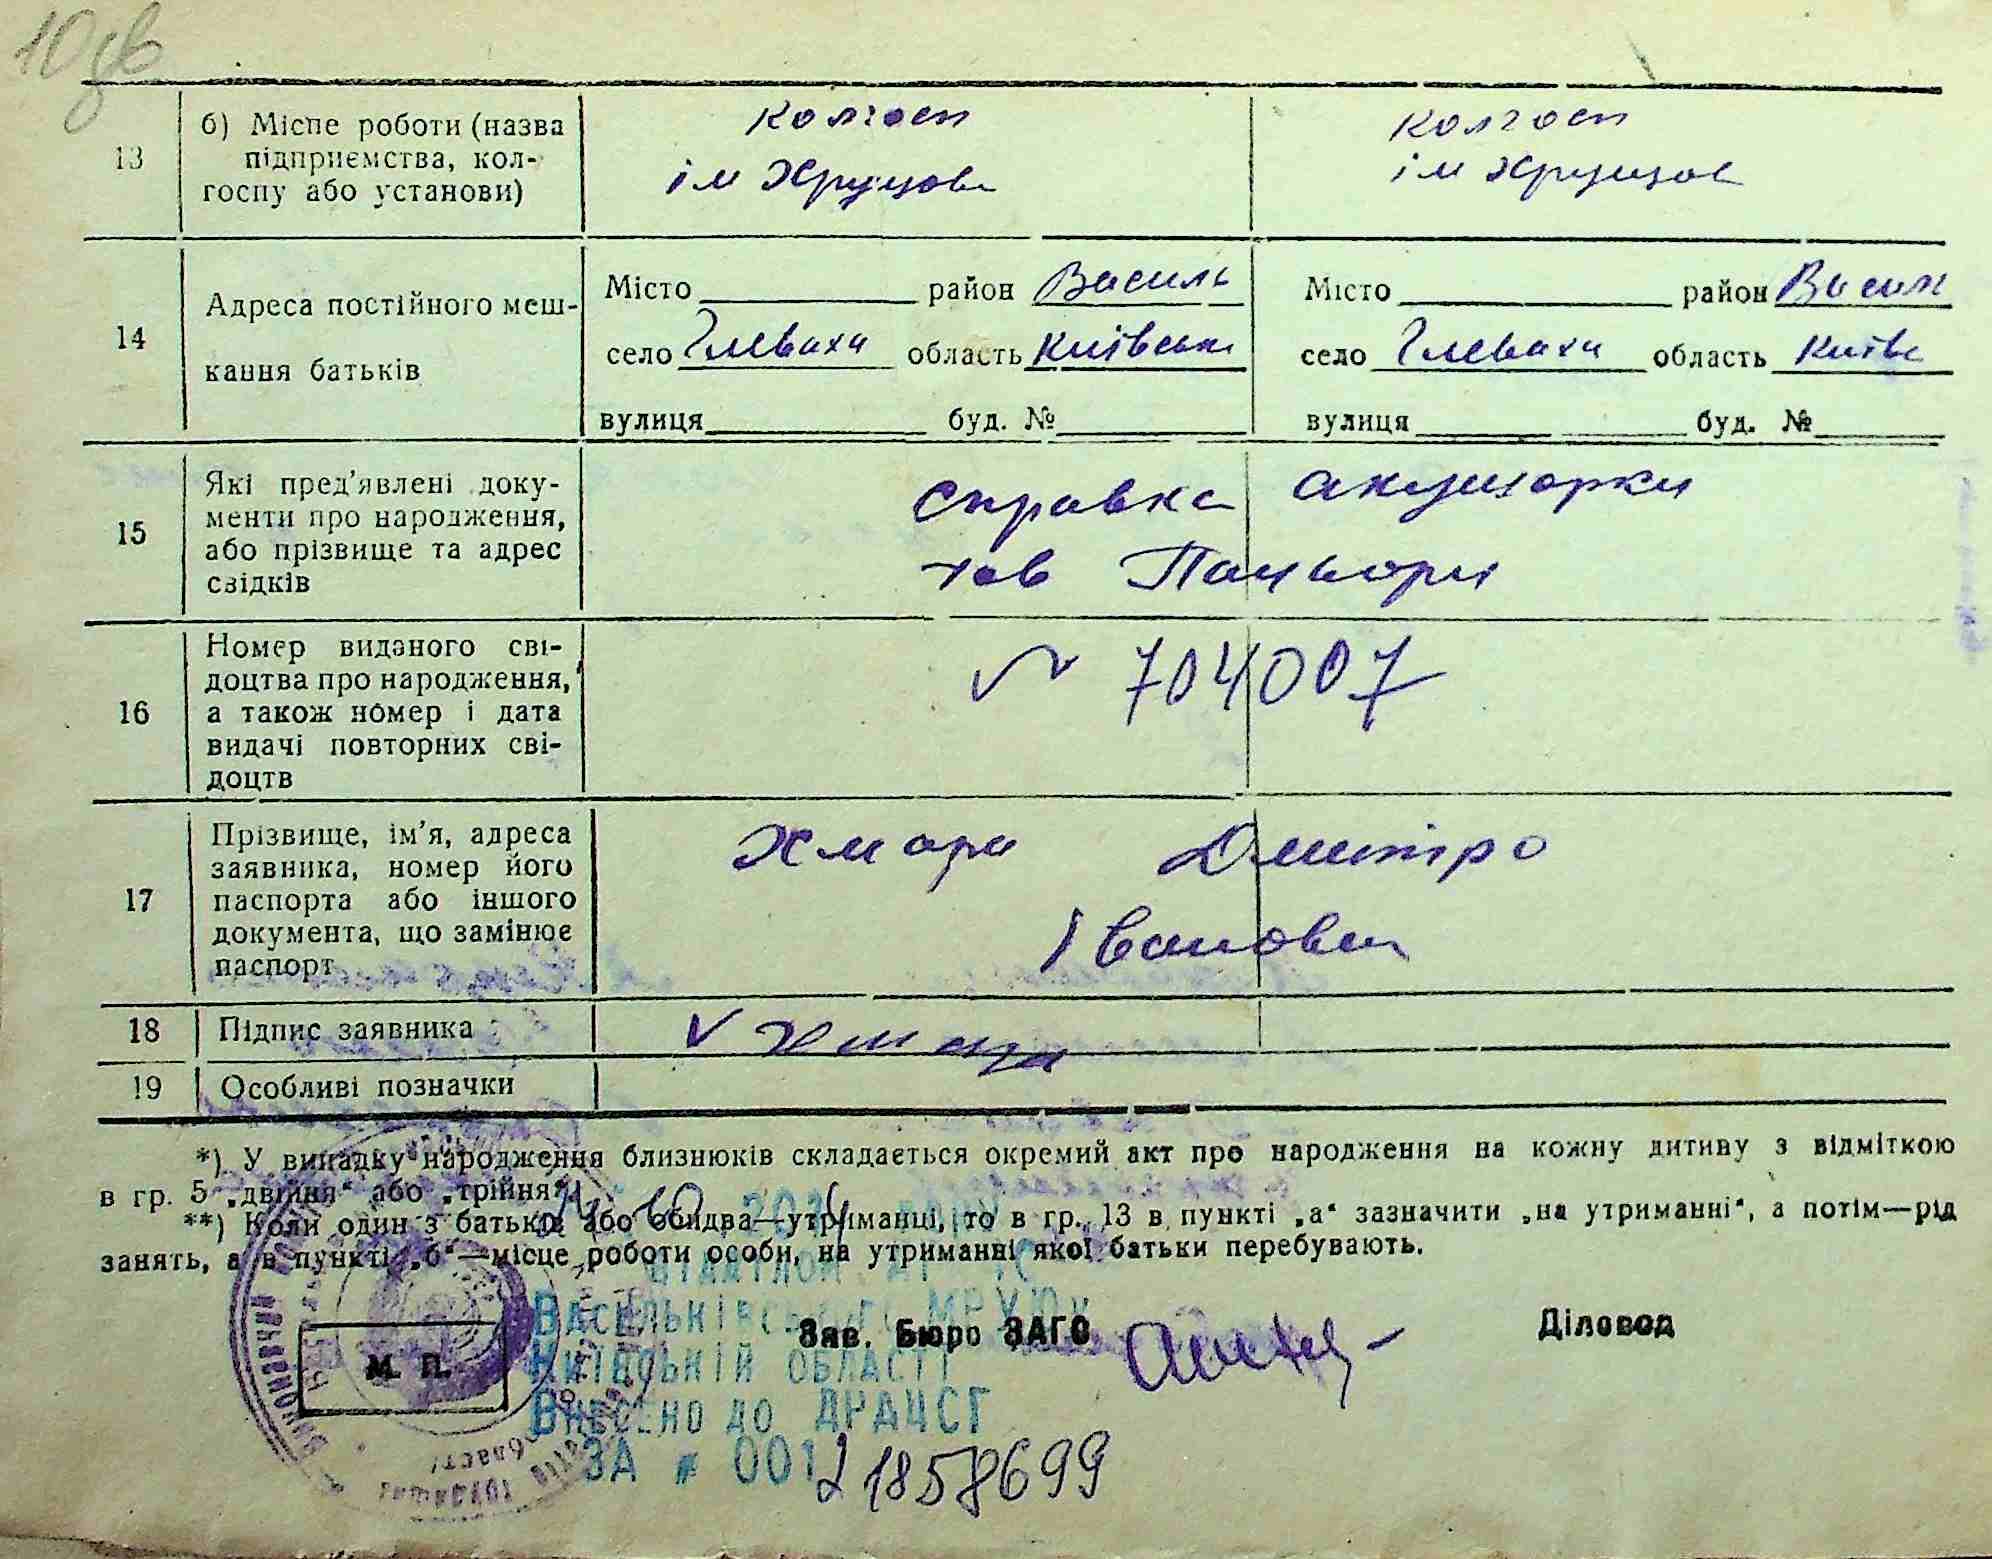 10 зв
13
б) Місце роботи (назва
підприємства, кол-
госпу або установи)
колгосп
ім Хрущова
колгосп
ім Хрущов
14
Адреса постійного меш-
кання батьків
Місто район Василь
село Глеваха область Київськ
вулиця буд. №
Місто район Васил
село Глеваха область Київс
вулиця буд. №
15
Які пред'явлені доку-
менти про народження,
або прізвище та адрес
свідків
справка акушорки
тов
16
Номер виданого сві-
доцтва про народження,
а також номер і дата
видачі повторних сві-
доцтв
№ 704007
17
Прізвище, ім'я, адреса
заявника, номер його
паспорта або іншого
документа, що замінює
паспорт
Хмара Дмитро
Іванович
18
Підпис заявника
V Хмара
19
Особливі позначки
*) У випадку народження близнюків складається окремий акт про народження на кожну дитину з відміткою
в гр. 5 „двійня“ або „трійня“.
**) Коли один з батьків або обидва—утриманці, то в гр. 13 в пункті „а“ зазначити „на утриманні“, а потім—рід
занять, а в пункті „б“—місце роботи особи, на утриманні якої батьки перебувають.
Васильківського МРУЮ
Київській області
Внесено до ДРАЦСГ
За № 00121858699
М. П.
Зав. Бюро ЗАГС
Діловод